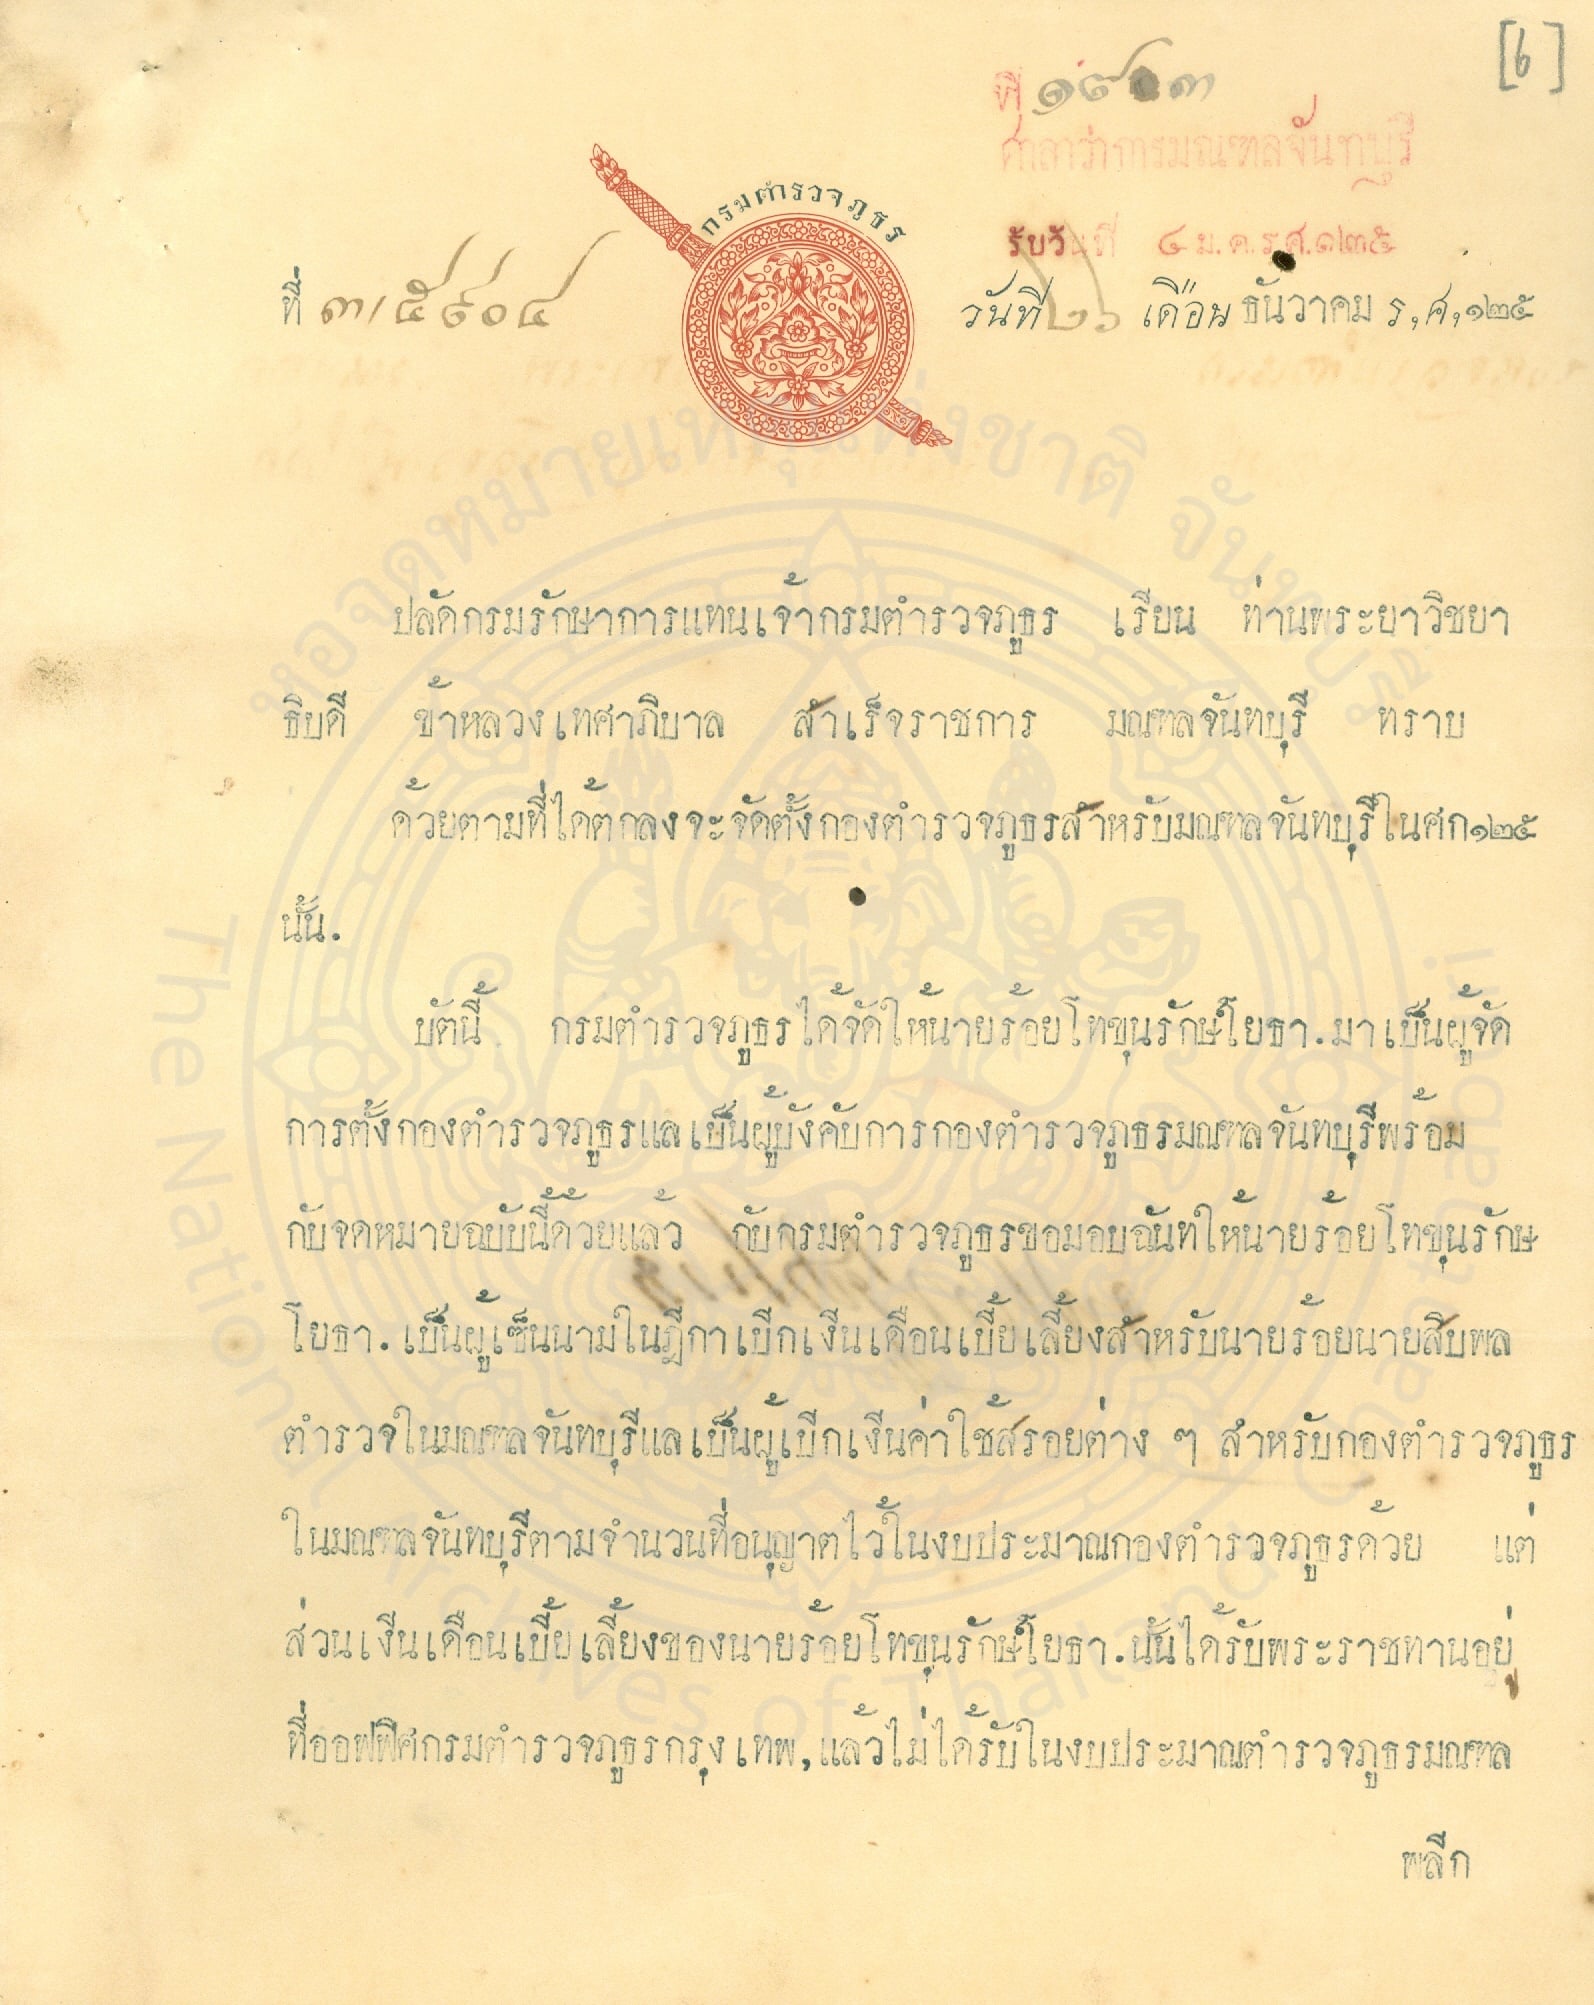 [๖]
ที่
ศาลาว่าการมณฑลจันทบุรี
กรมตำรวจภูธร
รับวันที่ ๔ ม.ค.ร.ศ.๑๒๕
ที่ ๓/๕๙๐๔ วันที่ ๒๖ เดือน ธันวาคม ร,ศ,๑๒๕
หอจดหมายเหตุแห่งชาติ จันทบุรี
ปลัดกรมรักษาการแทนเจ้ากรมตำรวจภูธร เรียน ท่านพระยาวิชยา
ธิบดี ข้าหลวงเทศาภิบาล สำเร็จราชการ มณฑลจันทบุรี ทราบ
ด้วยตามที่ได้ตกลงจะจัดตั้งกองตำรวจภูธรสำหรับมณฑลจันทบุรีในศก๑๒๕
นั้น.
บัตนี้ กรมตำรวจภูธรได้จัดให้นายร้อยโทขุนรักษ์โยธา.มาเป็นผู้จัด
การตั้งกองตำรวจภูธรแลเป็นผู้บังคับการกองตำรวจภูธรมณฑลจันทบุรีพร้อม
กับจดหมายฉบับนี้ด้วยแล้ว กับกรมตำรวจภูธรขอมอบฉันท์ให้นายร้อยโทขุนรักษ
โยธา. เป็นผู้เซ็นนามในฎีกาเบิกเงินเดือนเบี้ยเลี้ยงสำหรับนายร้อยนายสิบพล
ตำรวจในมณฑลจันทบุรีแลเป็นผู้เบิกเงินค่าใช้สรอยต่าง ๆ สำหรับกองตำรวจภูธร
ในมณฑลจันทบุรีตามจำนวนที่อนุญาตไว้ในงบประมาณกองตำรวจภูธรด้วย แต่
ส่วนเงินเดือนเบี้ยเลี้ยงของนายร้อยโทขุนรักษ์โยธา.นั้นได้รับพระราชทานอยู่
ที่ออฟฟิศกรมตำรวจภูธรกรุงเทพ,แล้วไม่ได้รับในงบประมาณตำรวจภูธรมณฑล
พลิก
The National Archives of Thailand